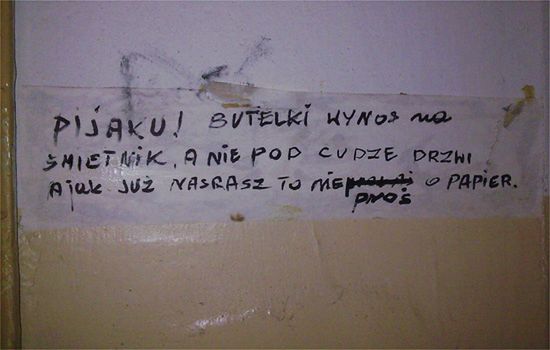 PIJAKU! BUTELKI WYNOŚ na
ŚMIETNIK, A NIE POD CUDZE DRZWI
A jak JUŻ NASRASZ TO NIE O PAPIER.
PROŚ